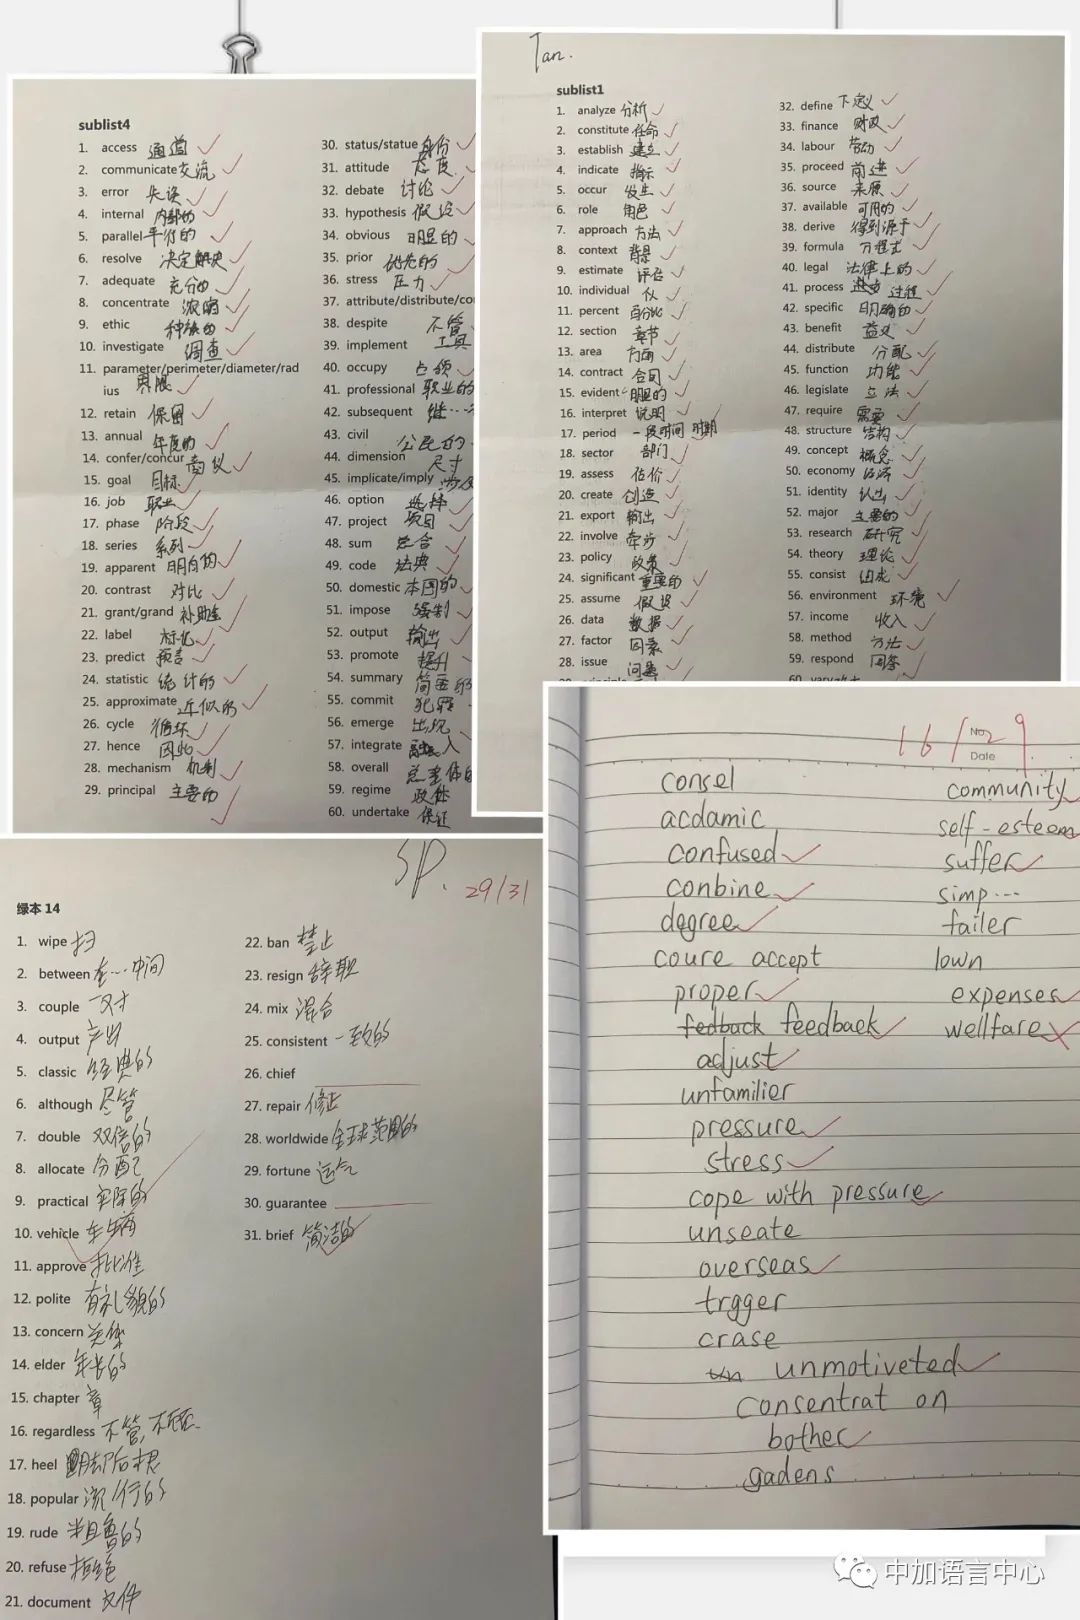 sublist4
1. access 通道
2. communicate 交流
3. error 失误
4. internal 内部的
5. parallel 平行的
6. resolve 决定解决
7. adequate 充分的
8. concentrate 浓缩
9. ethic 种族的
10. investigate 调查
11. parameter/perimeter/diameter/rad
ius 界限
12. retain 保留
13. annual 年度的
14. confer/concur 商议
15. goal 目标
16. job 职业
17. phase 阶段
18. series 系列
19. apparent 明白的
20. contrast 对比
21. grant/grand 补助金
22. label 标记
23. predict 预言
24. statistic 统计的
25. approximate 近似的
26. cycle 循环
27. hence 因此
28. mechanism 机制
29. principal 主要的
30. status/statue 身份
31. attitude 态度
32. debate 讨论
33. hypothesis 假设
34. obvious 明显的
35. prior 优先的
36. stress 压力
37. attribute/distribute/co
38. despite 不管
39. implement 工具
40. occupy 占领
41. professional 职业的
42. subsequent 继…
43. civil 公民的
44. dimension 尺寸
45. implicate/imply 涉及
46. option 选择
47. project 项目
48. sum 总合
49. code 法典
50. domestic 本国的
51. impose 强制
52. output 输出
53. promote 提升
54. summary 简要的
55. commit 犯罪
56. emerge 出现
57. integrate 融入
58. overall 总 整体的
59. regime 政体
60. undertake 保证
Tan.
sublist1
1. analyze 分析
2. constitute 任命
3. establish 建立
4. indicate 指示
5. occur 发生
6. role 角色
7. approach 方法
8. context 背景
9. estimate 评估
10. individual 个人
11. percent 百分比
12. section 章节
13. area 方面
14. contract 合同
15. evident 明显的
16. interpret 说明
17. period 一段时间 时期
18. sector 部门
19. assess 估价
20. create 创造
21. export 输出
22. involve 牵涉
23. policy 政策
24. significant 重要的
25. assume 假设
26. data 数据
27. factor 因素
28. issue 问题
32. define 下定义
33. finance 财政
34. labour 劳动
35. proceed 前进
36. source 来源
37. available 可用的
38. derive 得到源于
39. formula 方程式
40. legal 法律上的
41. process 过程
42. specific 明确的
43. benefit 益义
44. distribute 分配
45. function 功能
46. legislate 立法
47. require 需要
48. structure 结构
49. concept 概念
50. economy 经济
51. identity 认出
52. major 主要的
53. research 研究
54. theory 理论
55. consist 组成
56. environment 环境
57. income 收入
58. method 方法
59. respond 回答
SP. 29/31
绿本 14
1. wipe 扫
2. between 在…中间
3. couple 一对
4. output 产出
5. classic 经典的
6. although 尽管
7. double 双倍的
8. allocate 分配
9. practical 实际的
10. vehicle 车辆
11. approve 批准
12. polite 有礼貌的
13. concern 关集
14. elder 年长的
15. chapter 章
16. regardless 不管,不顾
17. heel 脚后根
18. popular 流行的
19. rude 粗鲁的
20. refuse 拒绝
21. document 文件
22. ban 禁止
23. resign 辞职
24. mix 混合
25. consistent 一致的
26. chief
27. repair 修正
28. worldwide 全球范围的
29. fortune 运气
30. guarantee
31. brief 简洁的
16/29
No.
Date
consel
acdamic
confused
conbine
degree
coure accept
proper
fedback feedback
adjust
unfamilier
pressure
stress
cope with pressure
unseate
overseas
trgger
crase
un unmotiveted
consentrat on
bother
gadens
community
self-esteem
suffer
simp...
failer
lown
expenses
wellfare
中加语言中心